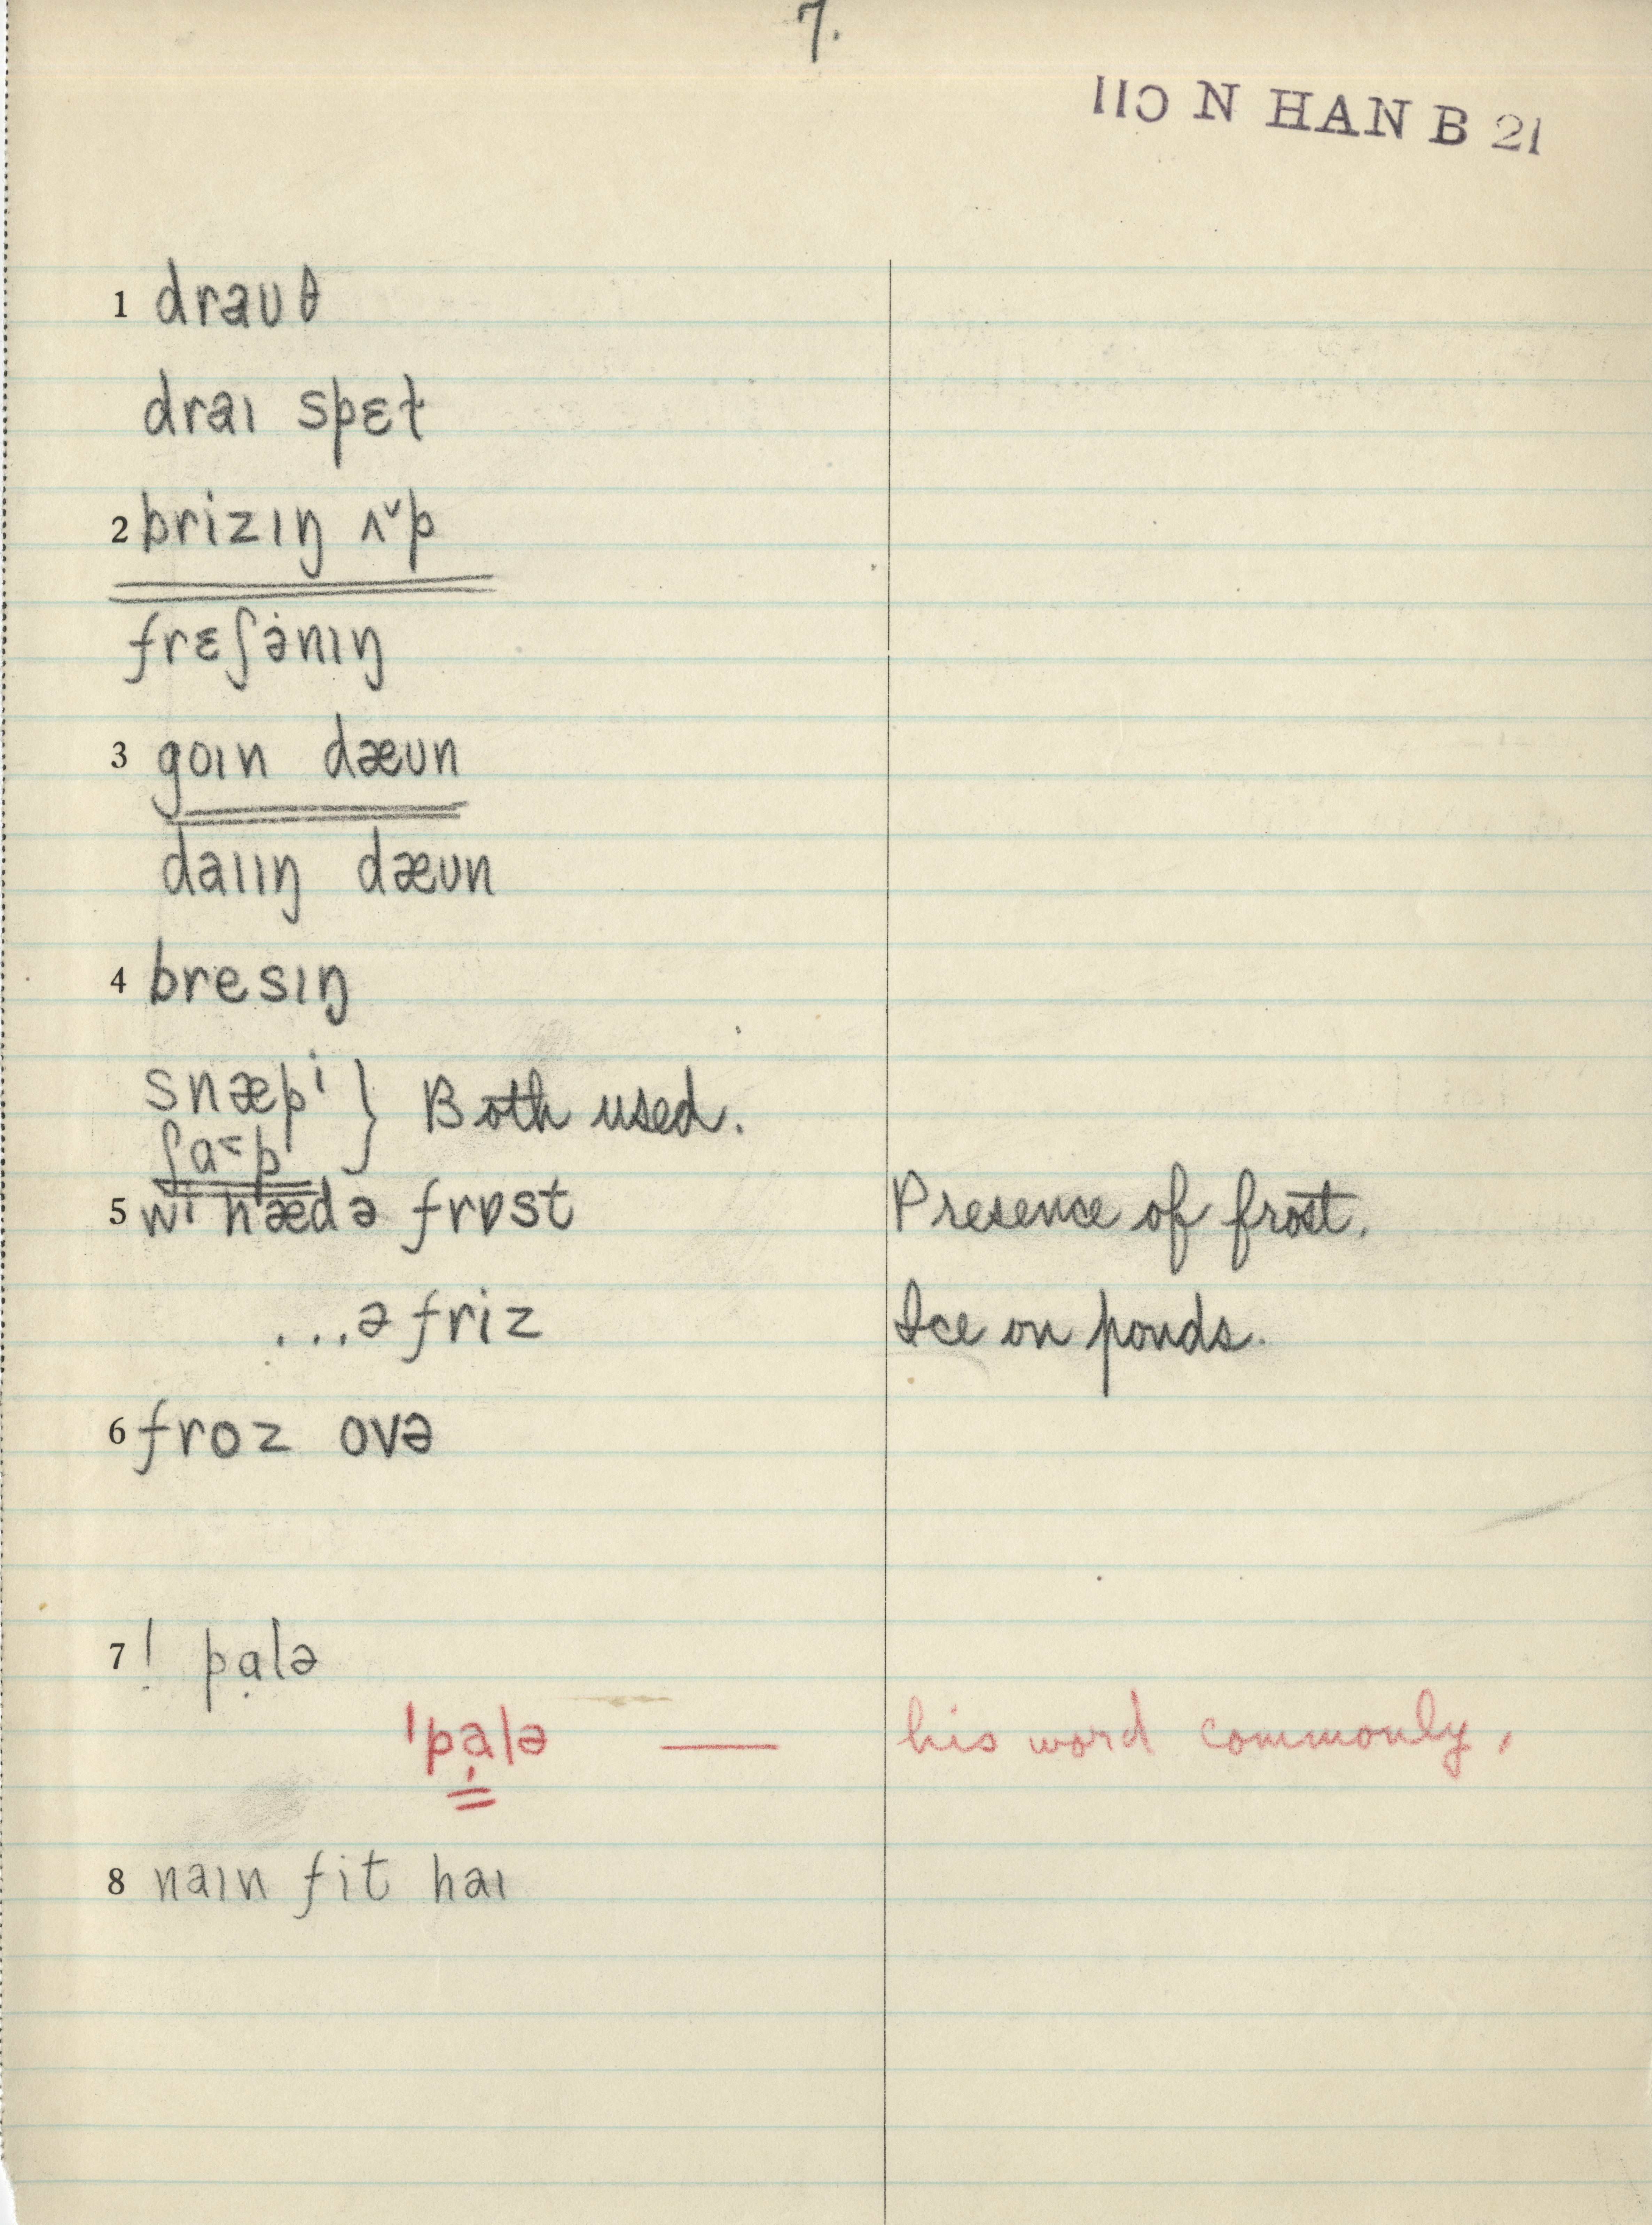 7.
IIↃ N HAN B 21
1 draʊθ
draɪ spɛt
2 brizɪŋ ʌ˅p
frɛʃənɪŋ
3 goɪn dæʊn
daɪɪŋ dæʊn
4 bresɪŋ
snæpi } Both used.
ʃa˂p
5 wi hædə frɒst Presence of frost.
...ə friz Ice on ponds.
6 froz ovə
7 ! pạlə
ˈpạlə — his word commonly.
8 naɪn fit haɪ